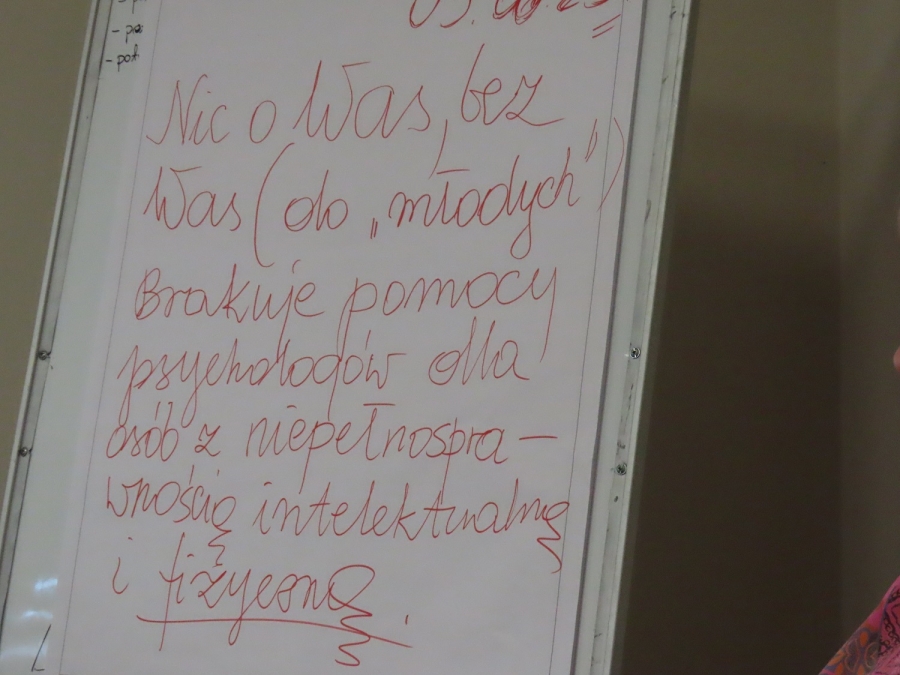 - pot
Nic o Was, bez
Was (do „młodych")
Brakuje pomocy
psychologów dla
osób z niepełnospra-
wnością intelektualną
i fizyczną.